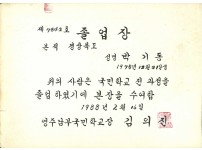 제7852호
졸업장
본적 경상북도
성명 박기동
1975년 12월 21일생
위의 사람은 국민학교 전 과정을
졸업하였기에 본장을 수여함
1988년 2월 16일
영주남부국민학교장 김의진